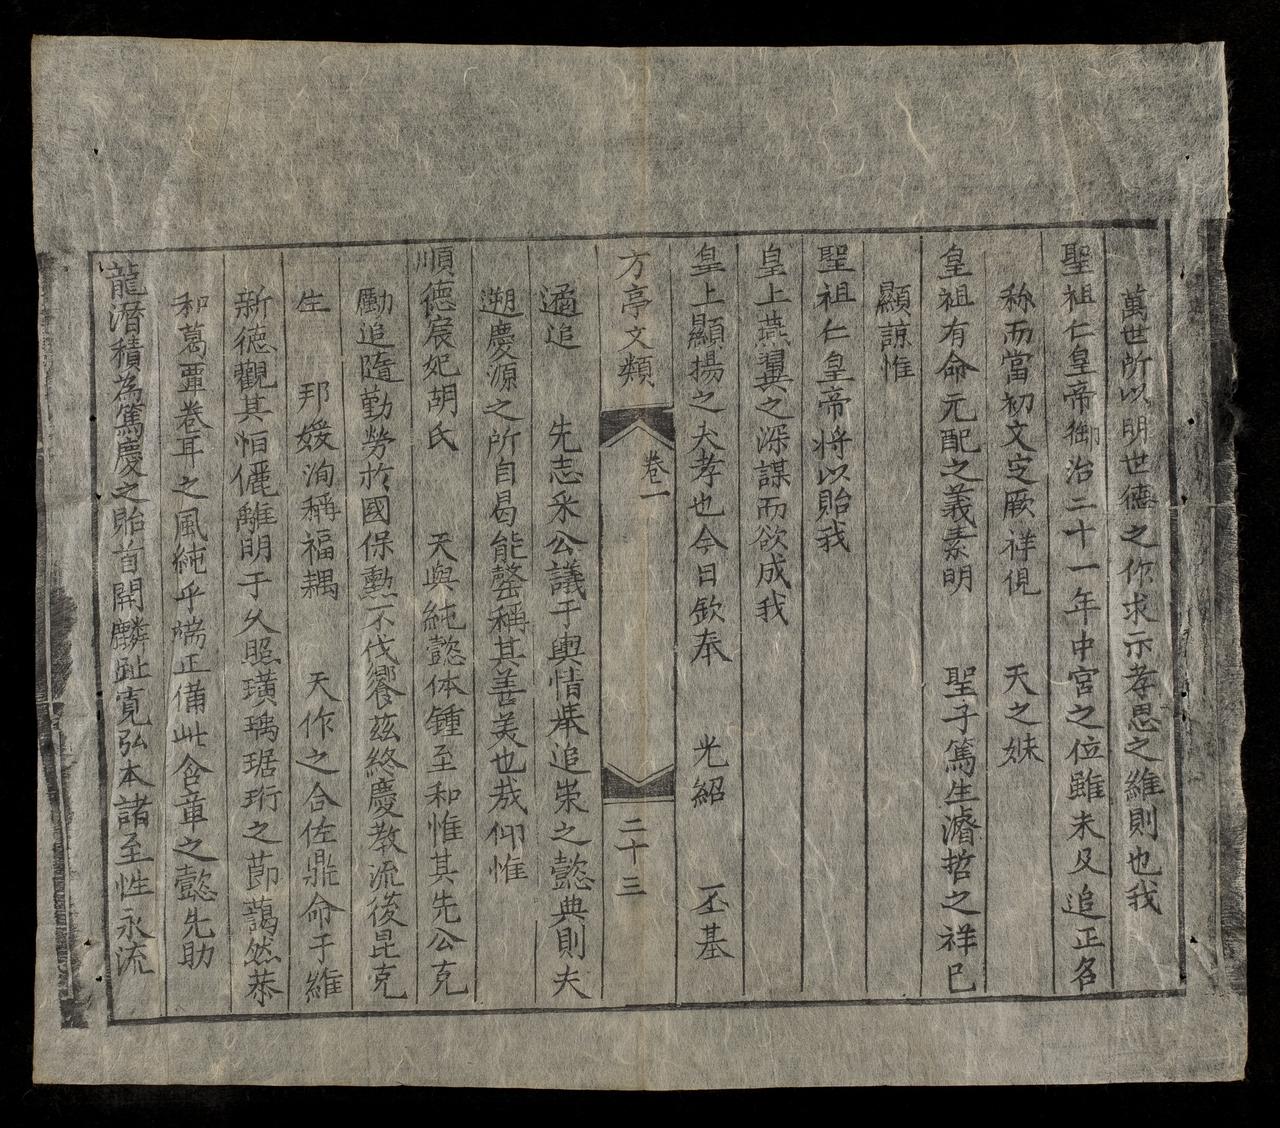 萬世所以明世德之作求示孝思之維則也我
聖祖仁皇帝御治二十一年中宮之位雖未及追正名
称而當初文定厥祥俔　天之妹
皇祖有命元配之義素明　聖子篤生濬哲之祥已
顯諒惟
聖祖仁皇帝将以貽我
皇上燕翼之深謀而欲成我
皇上顯揚之大孝也今日欽奉　光紹　丕基
方亭文類　卷一　二十三
遹追　先志采公議于輿情举追崇之懿典則夫
遡慶源之所自曷能罄稱其善美也哉仰惟
順德宸妃胡氏　天與純懿体鍾至和惟其先公克
勵追隨勤勞於國保勳不伐饗茲終慶教流後昆克
生　邦媛洵稱福耦　天作之合佐鼎命于維
新德觀其怕儷離明于久照璜瑀琚珩之莭藹然恭
和葛覃卷耳之風純乎端正備此含章之懿先助
龍潛積為篤慶之貽首開麟趾寛弘本諸至性永流